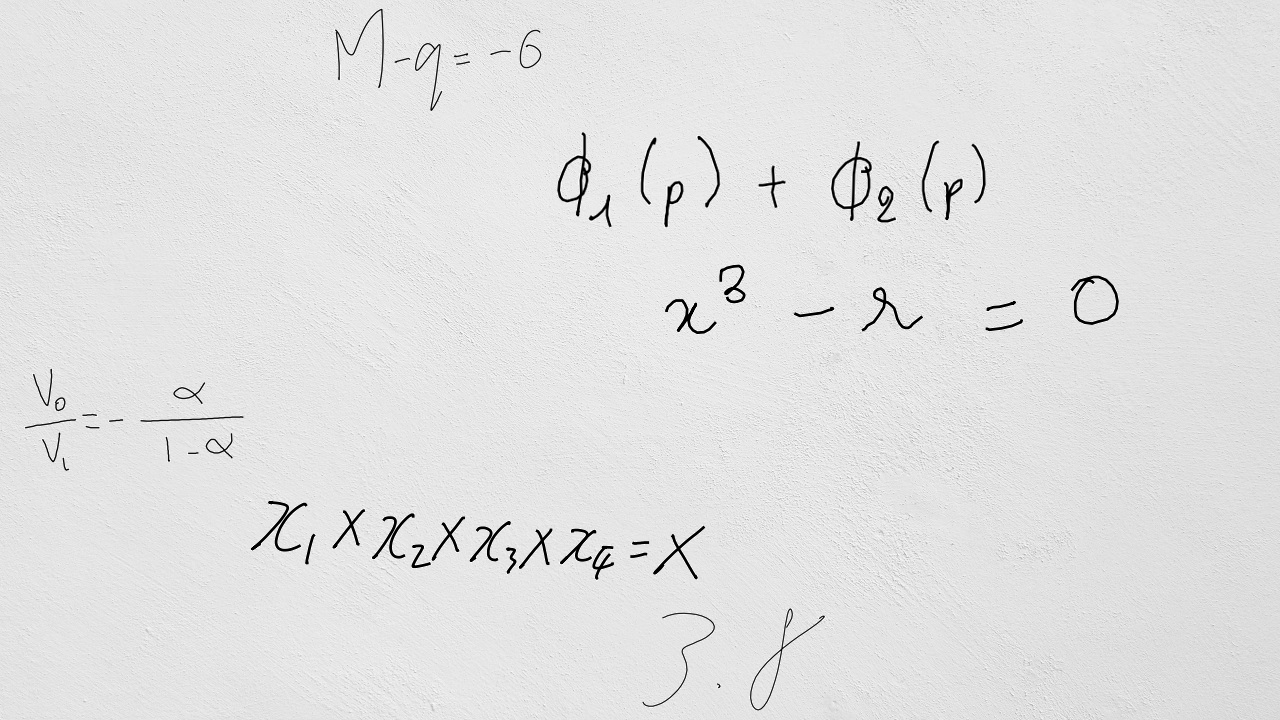 M - q = -6
ϕ₁(p) + ϕ₂(p)
x³ - r = 0
V₀/V₁ = - α/(1-α)
x₁ × x₂ × x₃ × x₄ = X
3.8